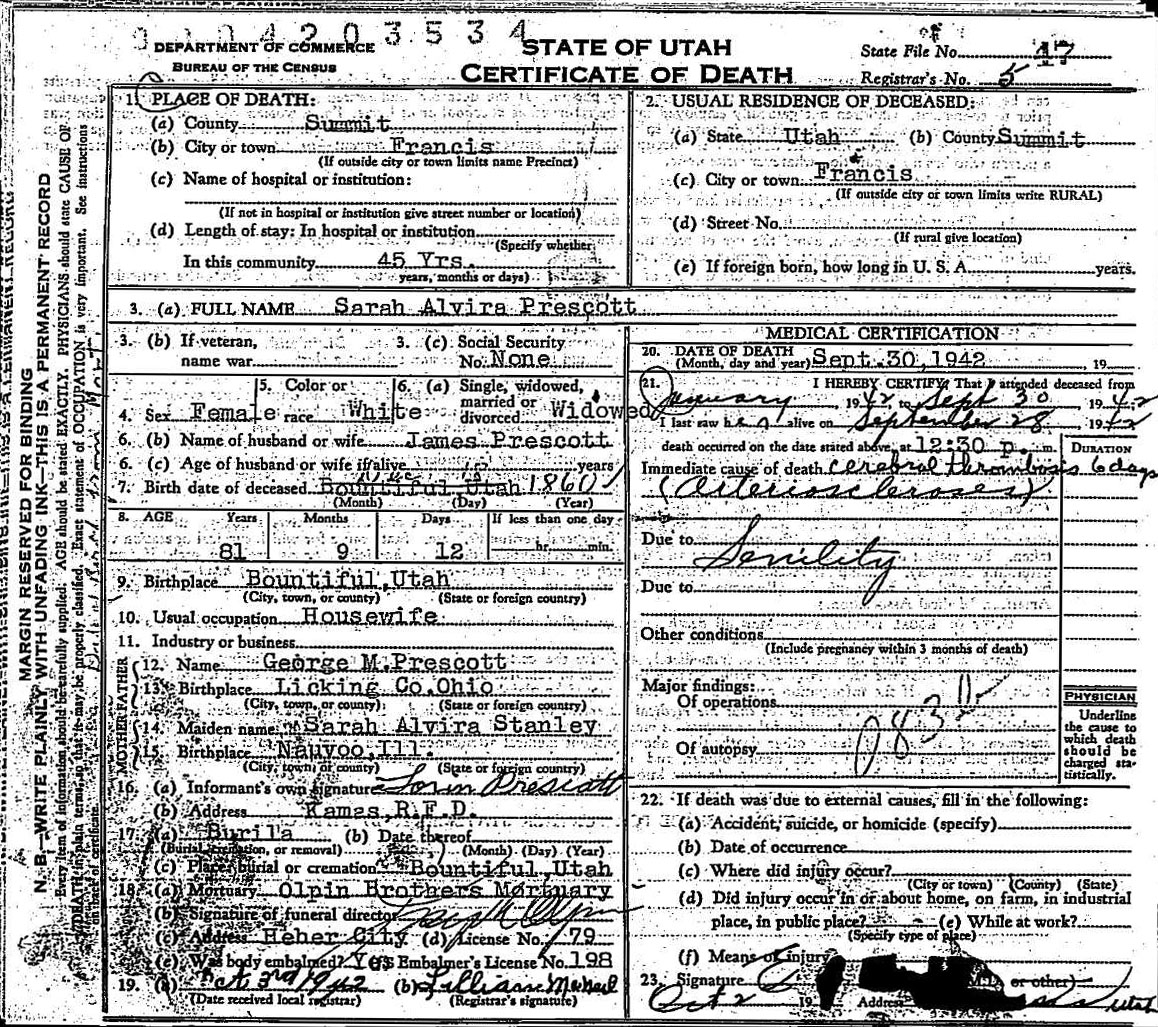 9 1 0 4 2 0 3 5 3 4
DEPARTMENT OF COMMERCE
BUREAU OF THE CENSUS
STATE OF UTAH
CERTIFICATE OF DEATH
State File No. 47
Registrar's No. 5
MARGIN RESERVED FOR BINDING
N. B.—WRITE PLAINLY WITH UNFADING INK—THIS IS A PERMANENT RECORD
Every item of information should be carefully supplied. AGE should be stated EXACTLY. PHYSICIANS should state CAUSE OF
DEATH in plain terms, so that it may be properly classified. Exact statement of OCCUPATION is very important. See instructions
on back of certificate.
1. PLACE OF DEATH:
(a) County Summit
(b) City or town Francis
(If outside city or town limits name Precinct)
(c) Name of hospital or institution:
(If not in hospital or institution give street number or location)
(d) Length of stay: In hospital or institution
(Specify whether
In this community 45 Yrs.
years, months or days)
2. USUAL RESIDENCE OF DECEASED:
(a) State Utah (b) County Summit
(c) City or town Francis
(If outside city or town limits write RURAL)
(d) Street No.
(If rural give location)
(e) If foreign born, how long in U. S. A. years.
3. (a) FULL NAME Sarah Alvira Prescott
3. (b) If veteran, name war
3. (c) Social Security No. None
4. Sex Female
5. Color or race White
6. (a) Single, widowed, married or divorced Widowed
6. (b) Name of husband or wife James Prescott
6. (c) Age of husband or wife if alive years
7. Birth date of deceased Bountiful Utah 1860
(Month) (Day) (Year)
8. AGE Years Months Days If less than one day
81 9 12 hr. min.
9. Birthplace Bountiful, Utah
(City, town, or county) (State or foreign country)
10. Usual occupation Housewife
11. Industry or business
FATHER
12. Name George M. Prescott
13. Birthplace Licking Co. Ohio
(City, town, or county) (State or foreign country)
MOTHER
14. Maiden name Sarah Alvira Stanley
15. Birthplace Nauvoo, Ill.
(City, town, or county) (State or foreign country)
16. (a) Informant's own signature Lorin Prescott
(b) Address Kamas, R.F.D.
17. (a) Burila (b) Date thereof
(Burial, cremation, or removal) (Month) (Day) (Year)
(c) Place: burial or cremation Bountiful, Utah
18. (a) Mortuary Olpin Brothers Mortuary
(b) Signature of funeral director
(c) Address Heber City (d) License No. 79
(e) Was body embalmed? Yes Embalmer's License No. 198
19. (a) Oct 3rd 1942 (b) Lillian McNeil
(Date received local registrar) (Registrar's signature)
MEDICAL CERTIFICATION
20. DATE OF DEATH
(Month, day and year) Sept. 30, 1942 19
21. I HEREBY CERTIFY, That I attended deceased from
January 1942 to Sept 30 1942
I last saw her alive on September 28 1942
death occurred on the date stated above, at 12:30 p. m.
DURATION
Immediate cause of death cerebral thrombosis 6 days
(Arterioscleroses)
Due to Senility
Due to
Other conditions
(Include pregnancy within 3 months of death)
Major findings:
Of operations
Of autopsy
083 b
PHYSICIAN
Underline
the cause to
which death
should be
charged sta-
tistically.
22. If death was due to external causes, fill in the following:
(a) Accident, suicide, or homicide (specify)
(b) Date of occurrence
(c) Where did injury occur?
(City or town) (County) (State)
(d) Did injury occur in or about home, on farm, in industrial
place, in public place? (e) While at work?
(Specify type of place)
(f) Means of injury
23. Signature (M.D. or other)
Oct 2 19 Address Utah